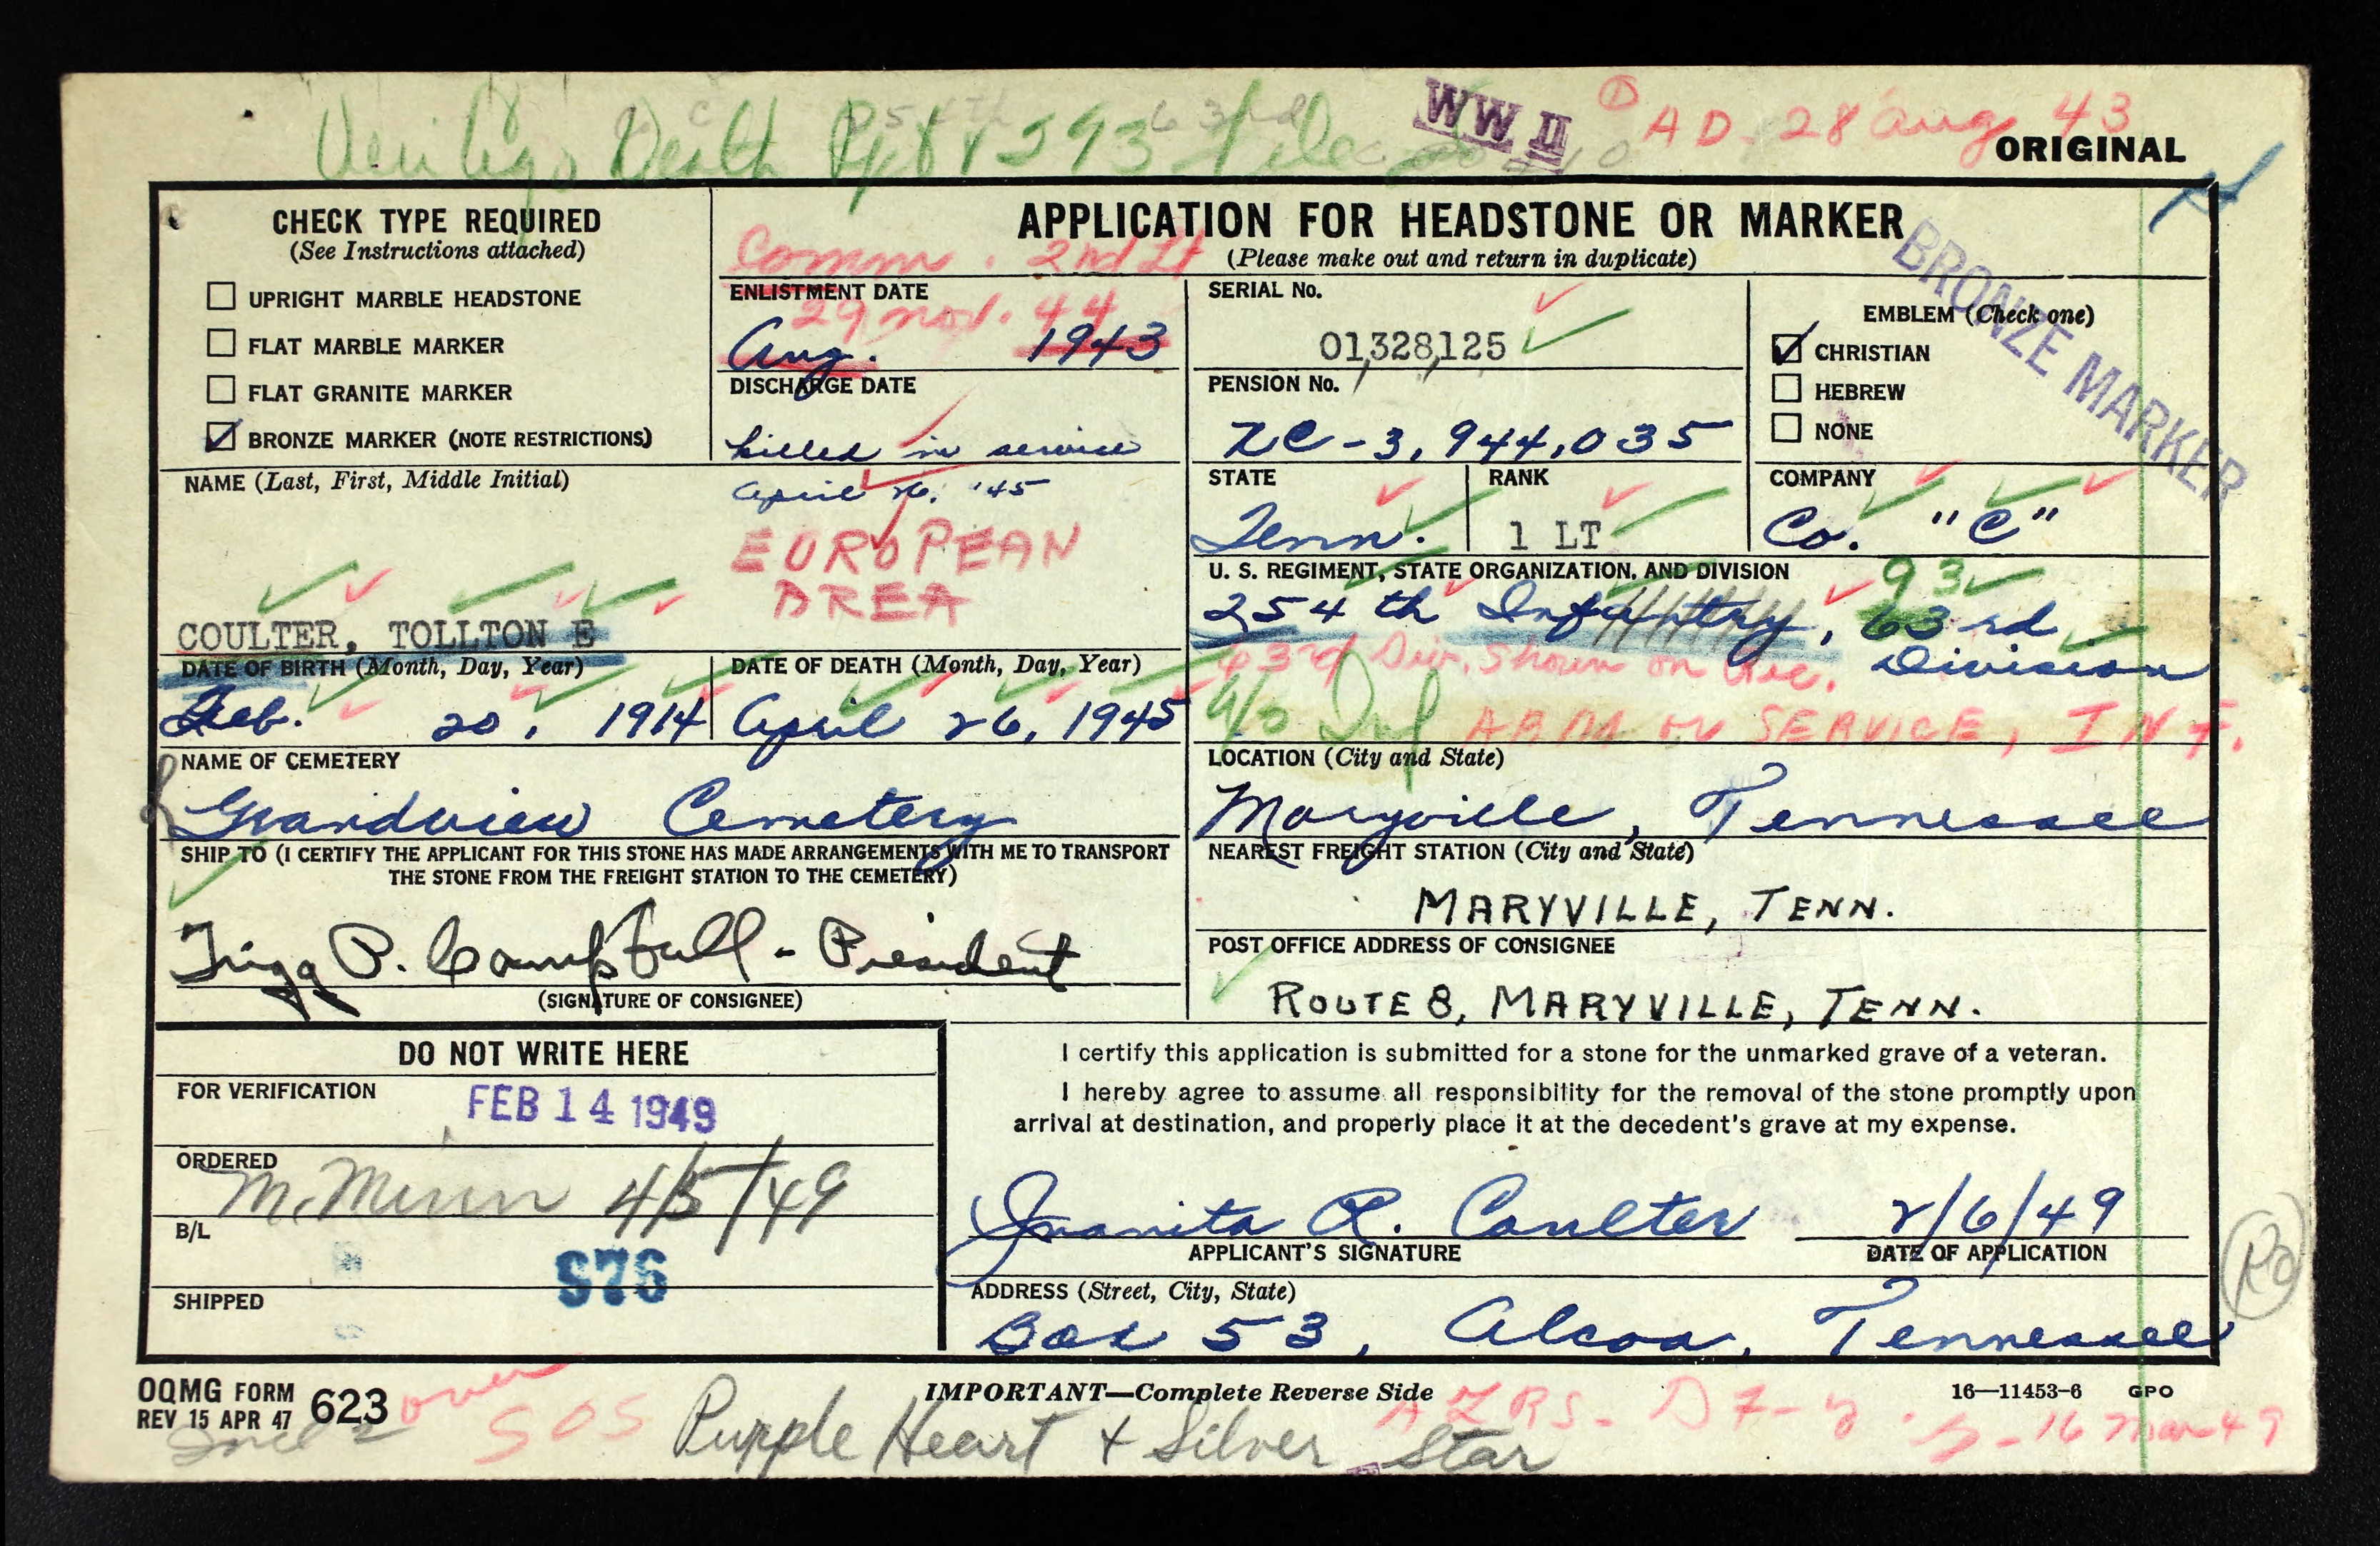 Death Rpt
WW II
AD - 28 Aug 43
ORIGINAL
CHECK TYPE REQUIRED
(See Instructions attached)
UPRIGHT MARBLE HEADSTONE
FLAT MARBLE MARKER
FLAT GRANITE MARKER
BRONZE MARKER (NOTE RESTRICTIONS)
APPLICATION FOR HEADSTONE OR MARKER
(Please make out and return in duplicate)
Comm. 2nd Lt
ENLISTMENT DATE
29 Nov. 44
Aug. 1943
DISCHARGE DATE
killed in service
April 26, '45
EUROPEAN
AREA
SERIAL No.
01328125
PENSION No.
XC-3,944,035
EMBLEM (Check one)
CHRISTIAN
HEBREW
NONE
BRONZE MARKER
STATE
Tenn.
RANK
1 LT
COMPANY
Co. "C"
NAME (Last, First, Middle Initial)
COULTER, TOLLTON E
U. S. REGIMENT, STATE ORGANIZATION, AND DIVISION
93
254th Infantry, 63rd
Division
63rd Div. Shown on Rec.
Inf ARM OR SERVICE, INF.
DATE OF BIRTH (Month, Day, Year)
Feb. 20, 1914
DATE OF DEATH (Month, Day, Year)
April 26, 1945
NAME OF CEMETERY
Grandview Cemetery
LOCATION (City and State)
Maryville, Tennessee
SHIP TO (I CERTIFY THE APPLICANT FOR THIS STONE HAS MADE ARRANGEMENTS WITH ME TO TRANSPORT
THE STONE FROM THE FREIGHT STATION TO THE CEMETERY)
Trigg P. Campbell - President
(SIGNATURE OF CONSIGNEE)
NEAREST FREIGHT STATION (City and State)
MARYVILLE, TENN.
POST OFFICE ADDRESS OF CONSIGNEE
ROUTE 8, MARYVILLE, TENN.
DO NOT WRITE HERE
FOR VERIFICATION
FEB 14 1949
ORDERED
McMinn 4/5/49
B/L
S76
SHIPPED
I certify this application is submitted for a stone for the unmarked grave of a veteran.
I hereby agree to assume all responsibility for the removal of the stone promptly upon
arrival at destination, and properly place it at the decedent's grave at my expense.
Juanita R. Coulter 2/6/49
APPLICANT'S SIGNATURE
DATE OF APPLICATION
ADDRESS (Street, City, State)
Box 53, Alcoa, Tennessee
OQMG FORM
REV 15 APR 47 623
over
SOS
IMPORTANT—Complete Reverse Side
16—11453-6 GPO
Purple Heart + Silver Star
16 Mar 49